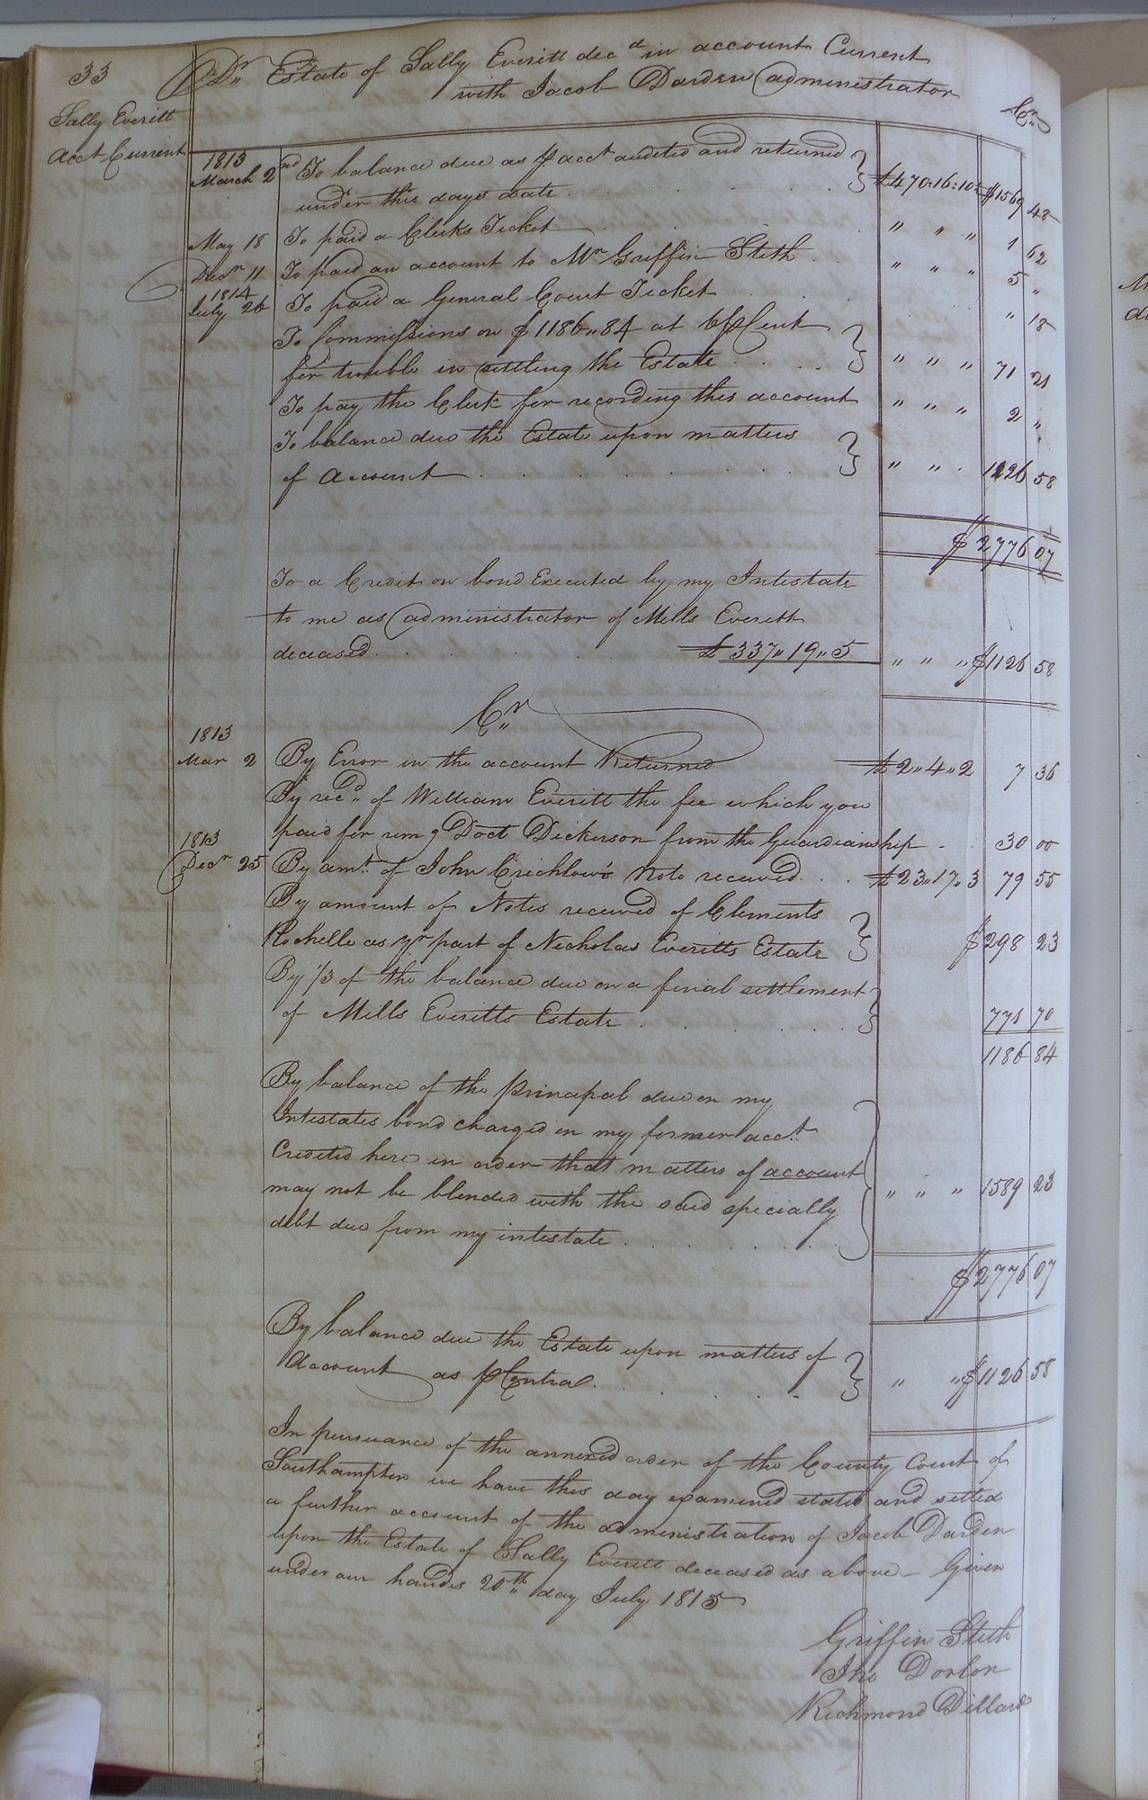 33
Sally Everitt
Acct Current
Dr. Estate of Sally Everitt decd in account Current
with Jacob Darden administrator
Cr.
1813
March 2nd To balance due as p acct audited and returned
under this days date . . . £470.16.10½ $1569 48
May 18 To paid a Clerks Ticket . . . " " " 1 62
Decr 11 To paid an account to Mr Griffin Stith . . " " " 5 "
1814
July 26 To paid a General Court Ticket . . . " 18
To Commissions on $1186.84 at 6 p Cent
for trouble in settling the Estate . . . " " " 71 21
To pay the Clerk for recording this account " " " 2 "
To balance due the Estate upon matters
of account . . . " " . 1126 58
$2776 07
To a Credit on bond Executed by my Intestate
to me as administrator of Mills Everitt
deceased . . . £337"19"5 " " " $1126 58
Cr.
1813
Mar 2 By Error in the account Returned £2"4"2 7 36
By recd. of William Everitt the fee which you
paid for remg Doct Dickerson from the Guardianship . . 30 00
1813
Decr 25 By amt. of John Crichlow's Note received . . . £23"17"3 79 55
By amount of Notes received of Clements
Rochelle as yr part of Nicholas Everitts Estate $298 23
By 1/3 of the balance due on a final settlement
of Mills Everitts Estate . . . 771 70
1186 84
By balance of the principal due on my
Intestates bond charged in my former acct.
Credited here in order that matters of account
may not be blended with the said specially
debt due from my intestate . . . " " " 1589 23
$2776 07
By balance due the Estate upon matters of
account as p Contra . . . " " $1126 58
In pursuance of the annexed order of the County Court of
Southampton we have this day examined stated and settled
a further account of the administration of Jacob Darden
upon the Estate of Sally Everitt deceased as above — Given
under our hands 20th day July 1815
Griffin Stith
Richmond Dillard